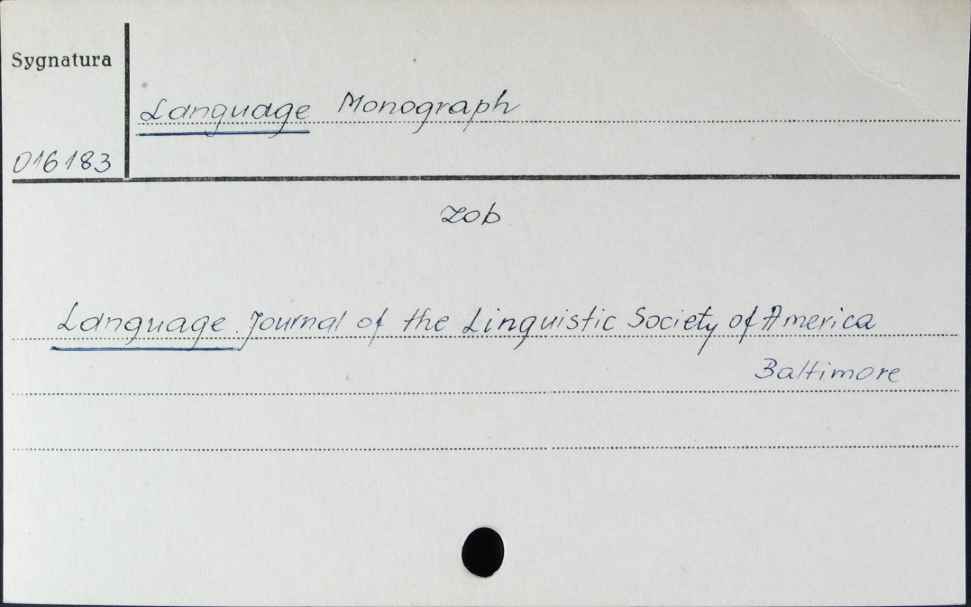 Sygnatura
Language Monograph
016183
zob
Language. Journal of the Linguistic Society of America
Baltimore